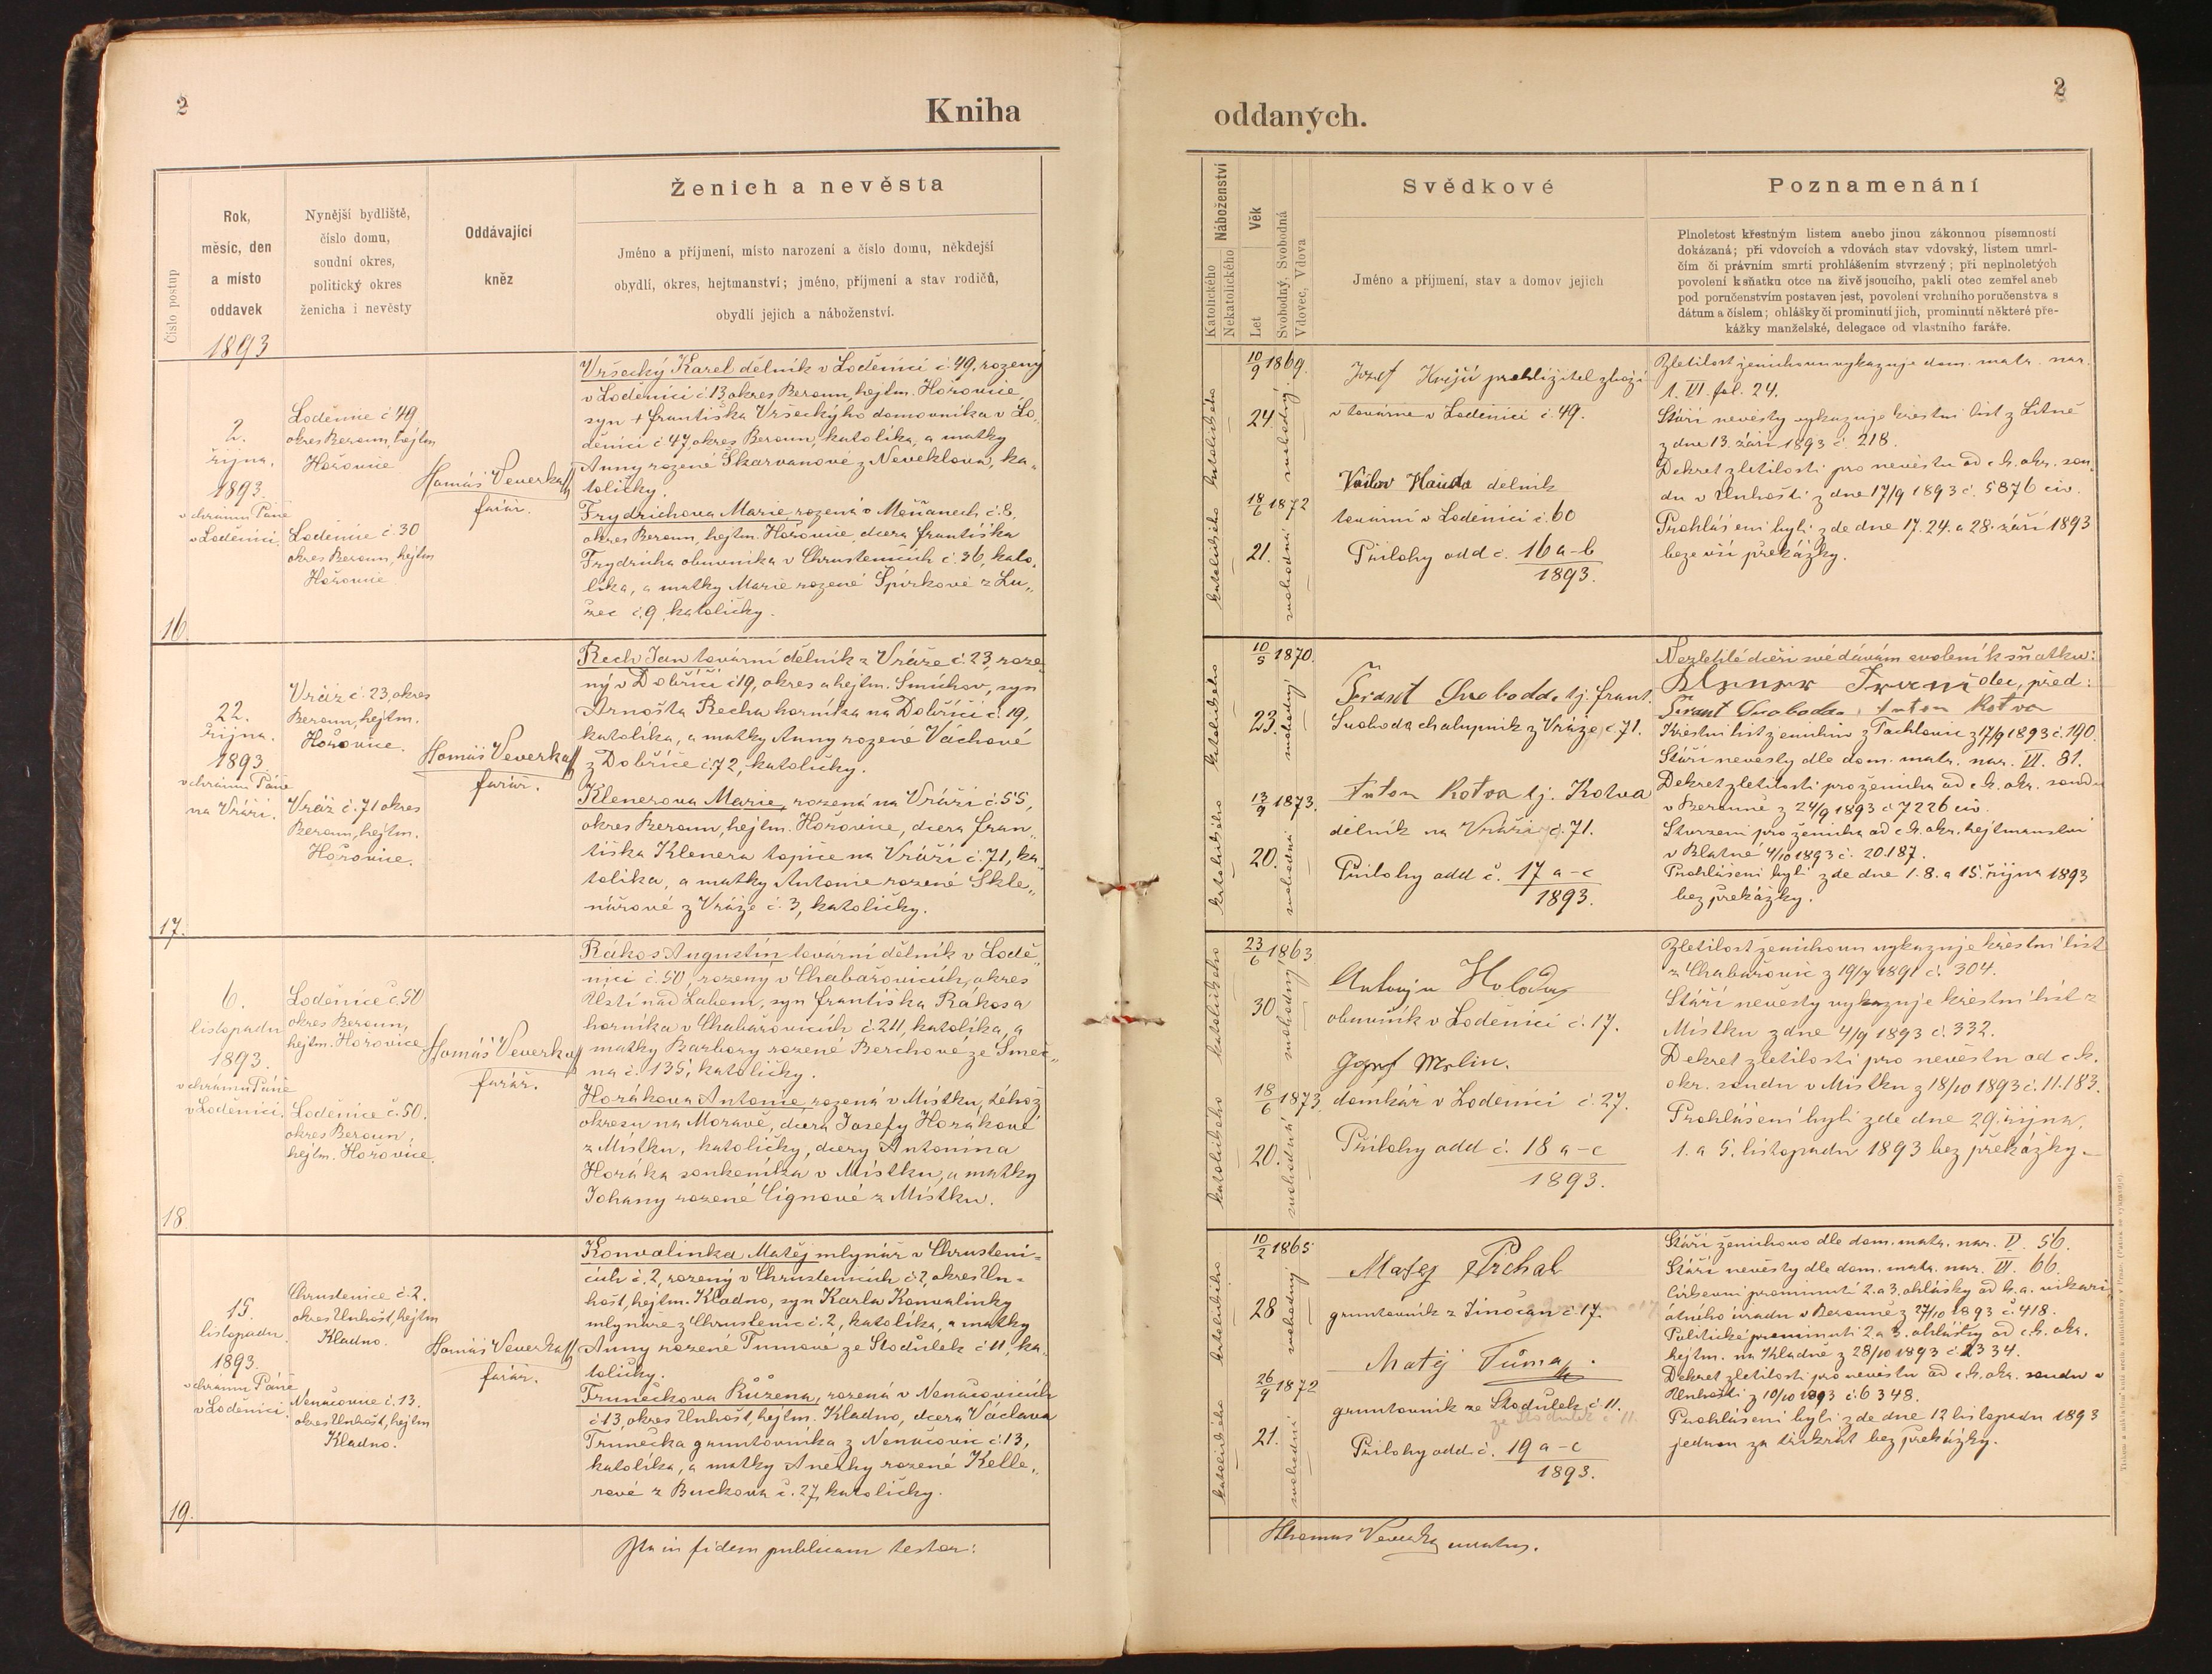 2
Kniha
Číslo postup
Rok,
měsíc, den
a místo
oddavek
1893
Nynější bydliště,
číslo domu,
soudní okres,
politický okres
ženicha i nevěsty
Oddávající
kněz
Ženich a nevěsta
Jméno a příjmení, místo narození a číslo domu, někdejší
obydlí, okres, hejtmanství; jméno, příjmení a stav rodičů,
obydlí jejich a náboženství.
16.
2.
října,
1893.
v chrámu Páně
v Loděnici.
Loděnice č 49
okres Beroun, hejtm
Hořovice
Loděnice č. 30
okres Beroun, hejtm
Hořovice
Tomáš Veverka
farář.
Vršecký Karel dělník v Loděnici č. 49, rozený
v Loděnici č. 13 okres Beroun, hejtm. Hořovice
syn + františka Vršeckýho domovníka v Lo„
děnici č 47, okres Beroun, katolíka, a matky
Anny rozené Škarvanové z Neveklova, ka„
toličky.
Frydrichova Marie rozená v Mořanech č. 8,
okres Beroun, hejtm. Hořovice, dcera františka
Frydricha obuvníka v Chrustenicích č. 36, kato„
líka, a matky Marie rozené Špírkové z Lu„
žec č. 9, katoličky.
17.
22.
října.
1893.
v chrámu Páně
na Vráži.
Vráž č. 23, okres
Beroun, hejtm.
Hořovice.
Vráž č. 71 okres
Beroun, hejtm.
Hořovice.
Tomáš Veverka
farář.
Rech Jan tovární dělník z Vráže č. 23, roze„
ný v Dobříči č 19, okres a hejtm. Smíchov, syn
Arnošta Recha horníka na Dobříči č. 19,
katolíka, a matky Anny rozené Váchové
z Dobříče č. 72, katoličky.
Klenerova Marie, rozená na Vráži č. 55,
okres Beroun, hejtm. Hořovice, dcera fran„
tiška Klenera topiče na Vráži č. 71, ka„
tolíka, a matky Antonie rozené Skle„
nářové z Vráže č. 3, katoličky.
18.
6.
listopadu
1893.
v chrámu Páně
v Loděnici.
Loděnice č. 50
okres Beroun,
hejtm. Hořovice
Loděnice č. 50.
okres Beroun,
hejtm. Hořovice.
Tomáš Veverka
farář.
Rákos Augustin tovární dělník v Lodě„
nici č. 50, rozený v Chabařovicích, okres
Ustí nad Labem, syn františka Rákosa
horníka v Chabařovicích č. 211, katolíka, a
matky Barbory rozené Berchové ze Smeč„
na č. 135, katoličky.
Horákova Antonie rozená v Místku, téhož
okresu na Moravě, dcera Josefy Horákové
z Místku, katoličky, dcery Antonína
Horáka soukeníka v Místku, a matky
Johany rozené Cignové z Místku.
19.
15.
listopadu.
1893.
v chrámu Páně
v Loděnici.
Chrustenice č. 2.
okres Unhošť, hejtm
Kladno.
Nenačovice č. 13.
okres Unhošť, hejtm
Kladno.
Tomáš Veverka
farář.
Konvalinka Matěj mlynář v Chrusteni=
cích č. 2, rozený v Chrustenicích č. 2, okres Un=
hošť, hejtm. Kladno, syn Karla Konvalinky
mlynáře z Chrustenic č. 2, katolíka, a matky
Anny rozené Tumové ze Stodůlek č 11, ka„
toličky.
Trunečkova Růžena, rozená v Nenačovicích
č 13, okres Unhošť, hejtm. Kladno, dcera Václava
Trunečka gruntovníka z Nenačovic č. 13,
katolíka, a matky Anežky rozené Kelle„
rové z Buckova č. 27, katoličky.
Ita in fidem publicam testor:
oddaných.
2
Náboženství
Katolického
Nekatolického
Věk
Let
Svobodný, Svobodná
Vdovec, Vdova
Svědkové
Jméno a příjmení, stav a domov jejich
Poznamenání
Plnoletost křestným listem anebo jinou zákonnou písemností
dokázaná; při vdovcích a vdovách stav vdovský, listem umrl-
čím či právním smrti prohlášením stvrzený; při neplnoletých
povolení ksňatku otce na živě jsoucího, pakli otec zemřel aneb
pod poručenstvím postaven jest, povolení vrchního poručenstva s
dátum a číslem; ohlášky či prominutí jich, prominutí některé pře-
kážky manželské, delegace od vlastního faráře.
katolického
katolického
10/9 1869.
24.
18/6 1872
21.
svobodný
svobodná
Josef prohlížitel zboží
v továrně v Loděnici č. 49.
Hauda dělník
tovární v Loděnici č. 60
Přílohy odd č. 16 a-b
1893.
Zletilost ženichovu vykazuje dom. matr. nar.
1. VI. fol. 24.
Stáří nevěsty vykazuje křestní list z Litně
z dne 13. září 1893 č. 218.
Dekret zletilosti pro nevěstu od c. k. okr. sou„
du v Unhošti z dne 17/9 1893 č. 5876 civ.
Prohlášeni byli zde dne 17. 24. a 28. září 1893
beze vší překážky.
katolického
katolického
10/5 1870.
23.
13/9 1873.
20.
svobodný
svobodná
Svoboda tj. frant.
Svoboda chalupník z Vráže č. 71.
Anton Kotva tj. Kotva
dělník na Vráži č. 71.
Přílohy odd č. 17 a-c
1893.
Nezletilé dceři své dávám svolení k sňatku:
otec, před:
Svoboda, Anton Kotva
Křestní list ženichův z Tachlovic z 17/9 1893 č. 190.
Stáří nevěsty dle dom. matr. nar. VI. 81.
Dekret zletilosti pro ženicha od c. k. okr. soudu
v Berouně z 24/9 1893 č 7226 civ.
Stvrzení pro ženicha od c. k. okr. hejtmanství
v Blatné 4/10 1893 č. 20187.
Prohlášeni byli zde dne 1. 8. a 15. října 1893
bez překážky.
katolického
katolického
23/6 1863
30.
18/6 1873.
20.
svobodný
svobodná
Antonín
obuvník v Loděnici č. 17.
domkář v Loděnici č. 27.
Přílohy odd č. 18 a-c
1893.
Zletilost ženichovu vykazuje křestní list
z Chabařovic z č. 304.
Stáří nevěsty vykazuje křestní list z
Místku z dne 4/9 1893 č. 332.
Dekret zletilosti pro nevěstu od c. k.
okr. soudu v Místku z 18/10 1893 č. 11.183.
Prohlášeni byli zde dne 29. října,
1. a 5. listopadu 1893 bez překážky.
katolického
katolického
10/2 1865
28
26/9 1872
21.
svobodný
svobodná
Matěj Prchal
gruntovník z Jinočan č 17.
Matěj Tůma.
gruntovník ze Stodůlek č 11.
ze Stodůlek č 11.
Přílohy odd. č. 19 a-c
1893.
Stáří ženichovo dle dom. matr. nar. V. 56.
Stáří nevěsty dle dom. matr. nar. VI. 66.
Církevní prominutí 2. a 3. ohlášky od k. a. vikari„
átního úřadu v Berouně z 27/10 1893 č. 418.
Politické prominutí 2. a 3. ohlášky od c. k. okr.
hejtm. na Kladně z 28/10 1893 č 2334.
Dekret zletilosti pro nevěstu od c. k. okr. soudu v
Unhošti z 10/10 1893 č. 6348.
Prohlášeni byli zde dne 12 listopadu 1893
jednou za třikrát bez překážky.
Thomas Veverka curatus.